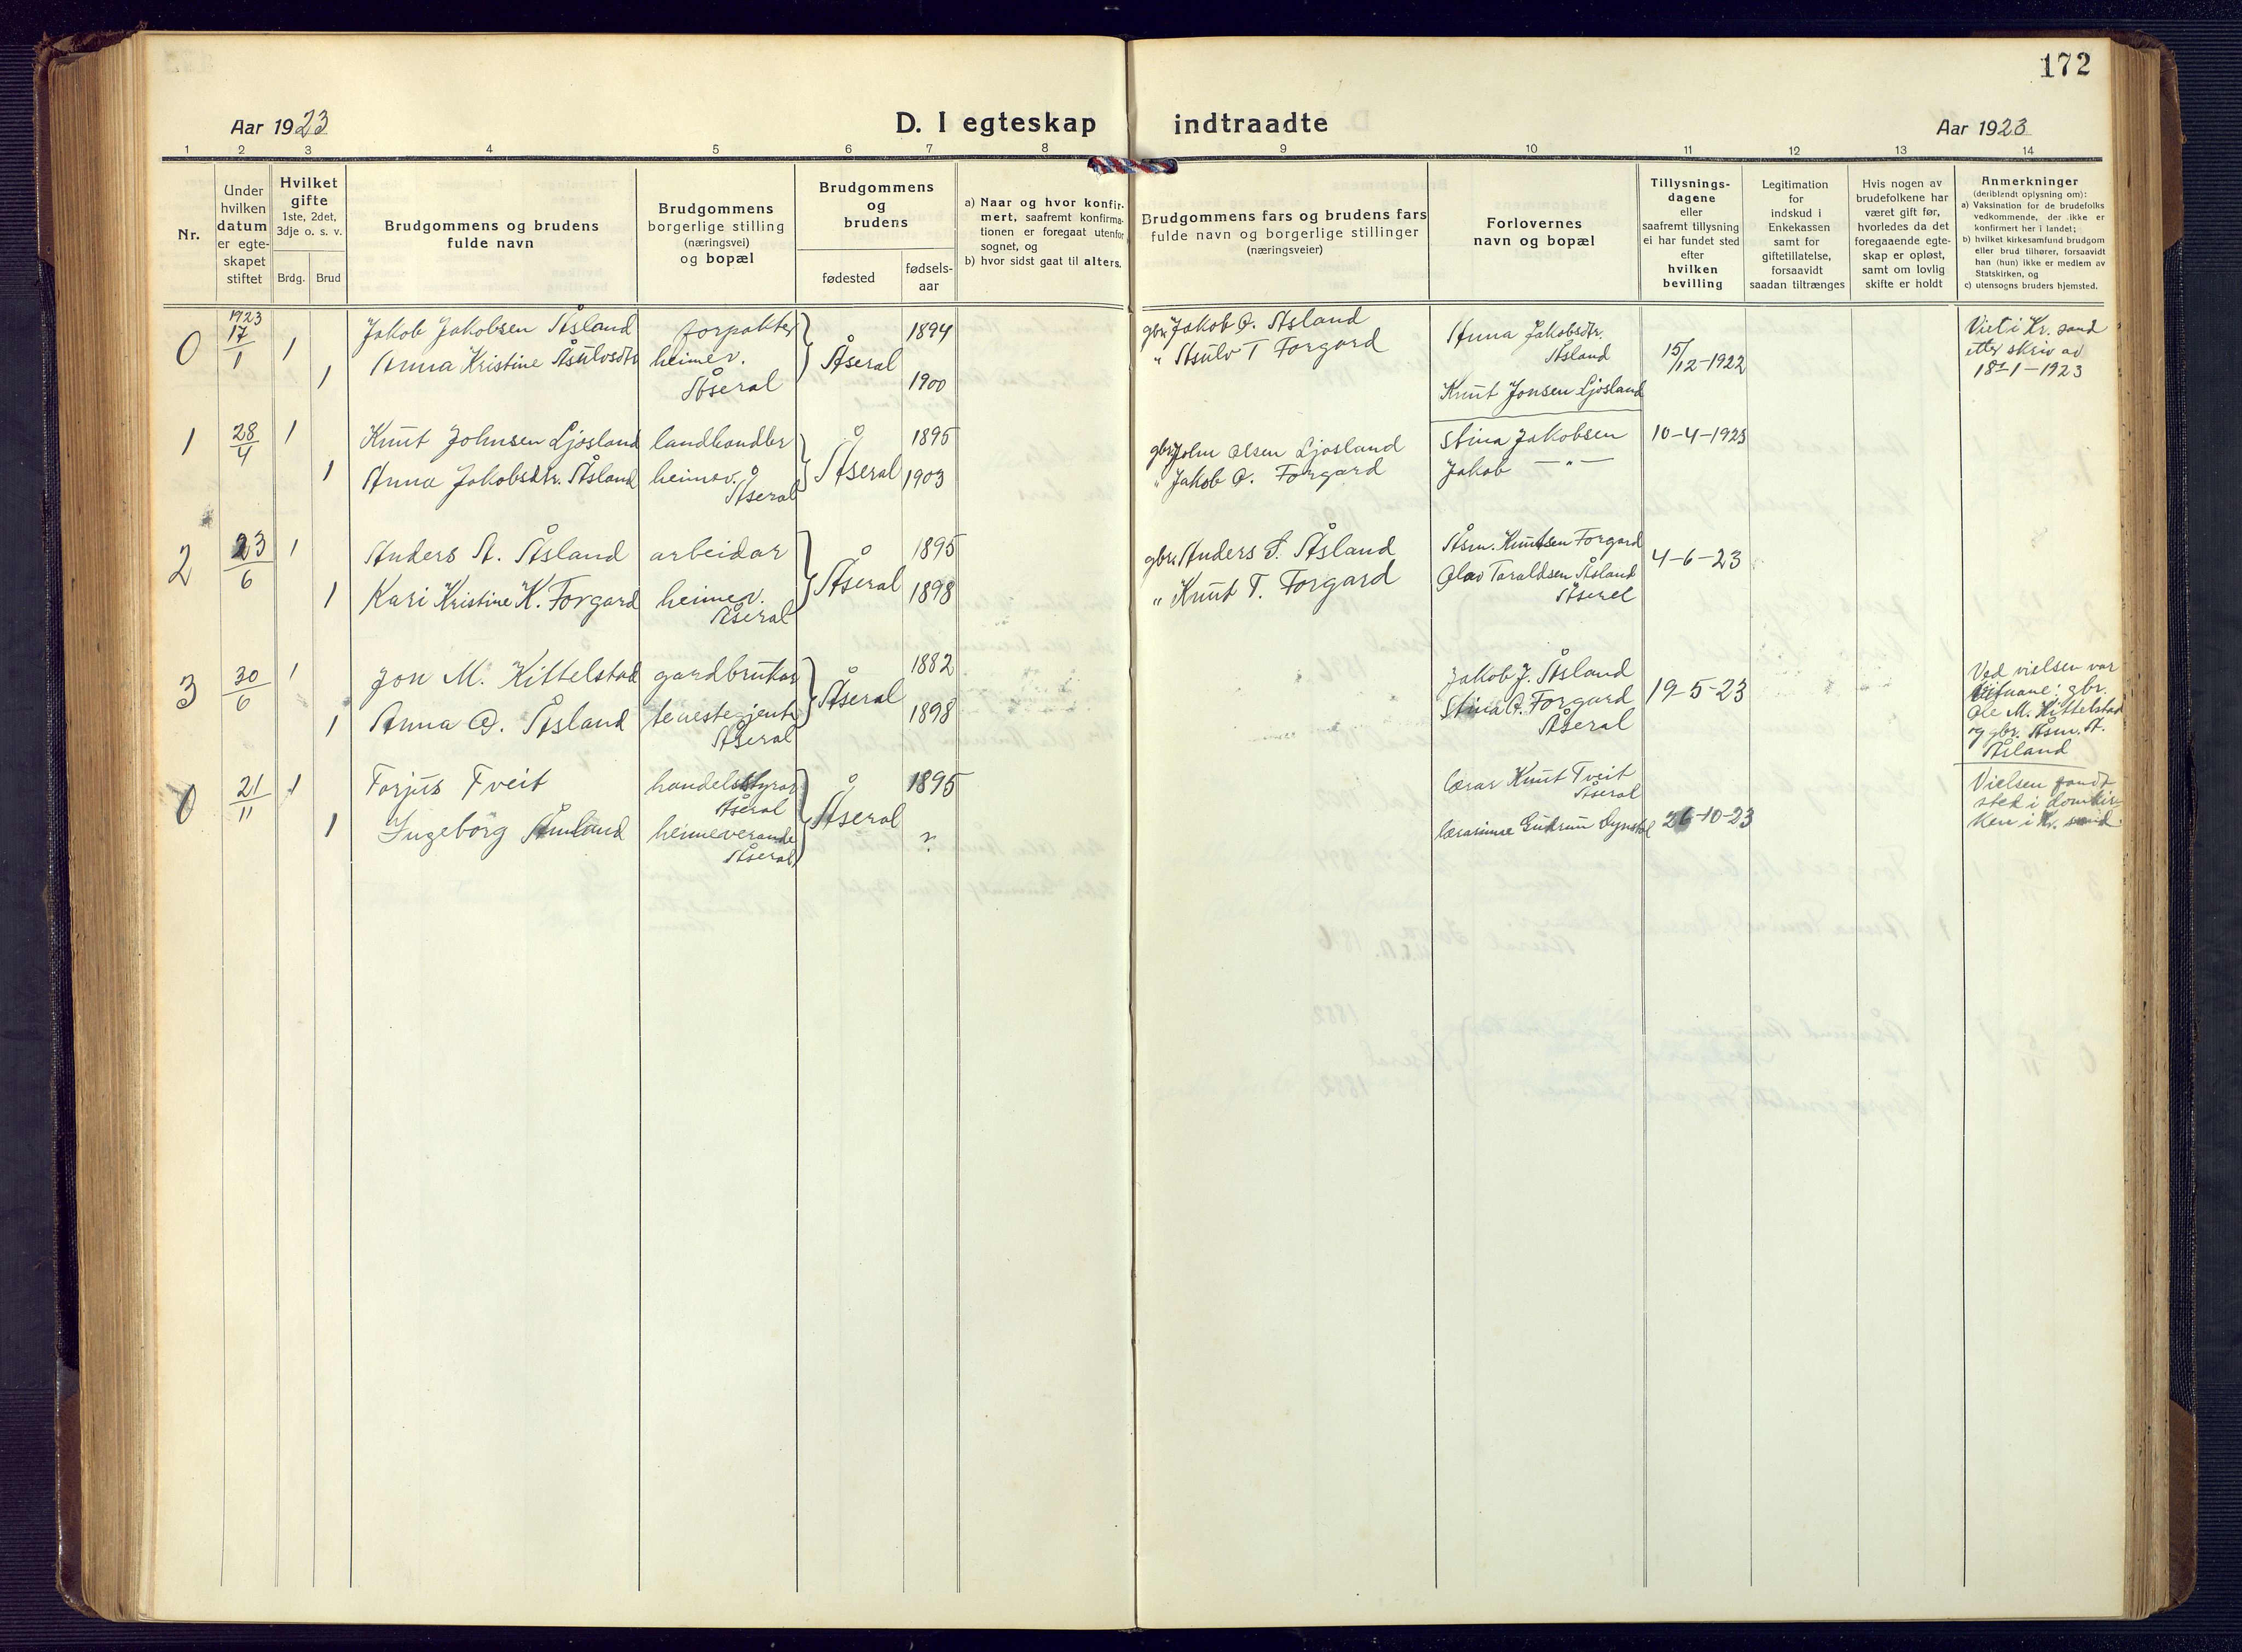 172
Aar 1923
D. I egteskap indtraadte
Aar 1923
1 2 3 4 5 6 7 8 9 10 11 12 13 14
Nr.
Under
hvilken
datum
er egte-
skapet
stiftet
Hvilket
gifte
1ste, 2det,
3dje o. s. v.
Brdg. Brud
Brudgommens og brudens
fulde navn
Brudgommens
borgerlige stilling
(næringsvei)
og bopæl
Brudgommens
og
brudens
fødested
fødsels-
aar
a) Naar og hvor konfir-
mert, saafremt konfirma-
tionen er foregaat utenfor
sognet, og
b) hvor sidst gaat til alters.
Brudgommens fars og brudens fars
fulde navn og borgerlige stillinger
(næringsveier)
Forlovernes
navn og bopæl
Tillysnings-
dagene
eller
saafremt tillysning
ei har fundet sted
efter
hvilken
bevilling
Legitimation
for
indskud i
Enkekassen
samt for
giftetillatelse,
forsaavidt
saadan tiltrænges
Hvis nogen av
brudefolkene har
været gift før,
hvorledes da det
foregaaende egte-
skap er opløst,
samt om lovlig
skifte er holdt
Anmerkninger
(deriblandt oplysning om):
a) Vaksination for de brudefolks
vedkommende, der ikke er
konfirmert her i landet;
b) hvilket kirkesamfund brudgom
eller brud tilhører, forsaavidt
han (hun) ikke er medlem av
Statskirken, og
c) utensogns bruders hjemsted.
0
1923
17
1
1
1
Jakob Jakobsen Åsland
Anna Kristine Åsulvsdtr
forpakter
heimev.
Åseral
Åseral
1894
1900
gbr. Jakob O. Åsland
" Åsulv T Forgard
Anna Jakobsdtr.
Åsland
Knut Jonsen Ljosland
15/12-1922
Viet i Kr. sand
etter skriv av
18/1-1923
1
28
4
1
1
Knut Johnsen Ljosland
Anna Jakobsdtr. Åsland
landhandler
heimev.
Åseral
Åseral
1895
1903
gbr. John Olsen Ljosland
" Jakob O. Forgard
Stina Jakobsen
Jakob — " —
10-4-1923
2
23
6
1
1
Anders A. Åsland
Kari Kristine K. Forgard
arbeidar
heimev.
Åseral
Åseral
1895
1898
gbr. Anders S. Åsland
" Knut T. Forgard
Åsm. Knutsen Forgard
Olav Taraldsen Åsland
Åseral
4-6-23
3
30
6
1
1
Jon M. Kittelstad
Anna O. Åsland
gardbrukar
tenestejente
Åseral
Åseral
1882
1898
Jakob J. Åsland
Stina A. Forgard
Åseral
19-5-23
Ved vielsen var
gbr.
Ole M. Kittelstad
og gbr. Åsm. A.
Åsland
0
21
11
1
1
Torjus Tveit
Ingeborg Åmland
handelsstyrar
Åseral
heimeverande
Åseral
Åseral
1895
?
lærar Knut Tveit
Åseral
lærarinne Gudrun
26-10-23
Vielsen fandt
sted i domkir-
ken i Kr. sand.